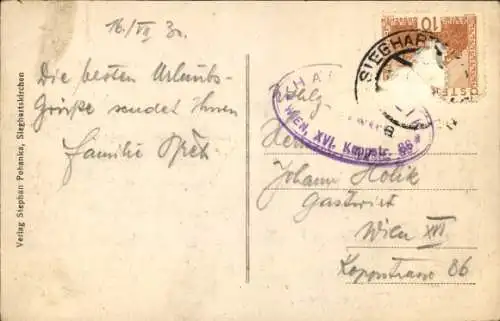 16./VII 30.
Die besten Urlaubs-
Grüße sendet Ihnen
Familie
Verlag Stephan Pohanka, Sieghartskirchen
10
ÖSTER
SIEGHAR
WIEN, XVI. Koppstr. 86
Johann Holik
Gastwirt
Wien XVI
Koppstrasse 86